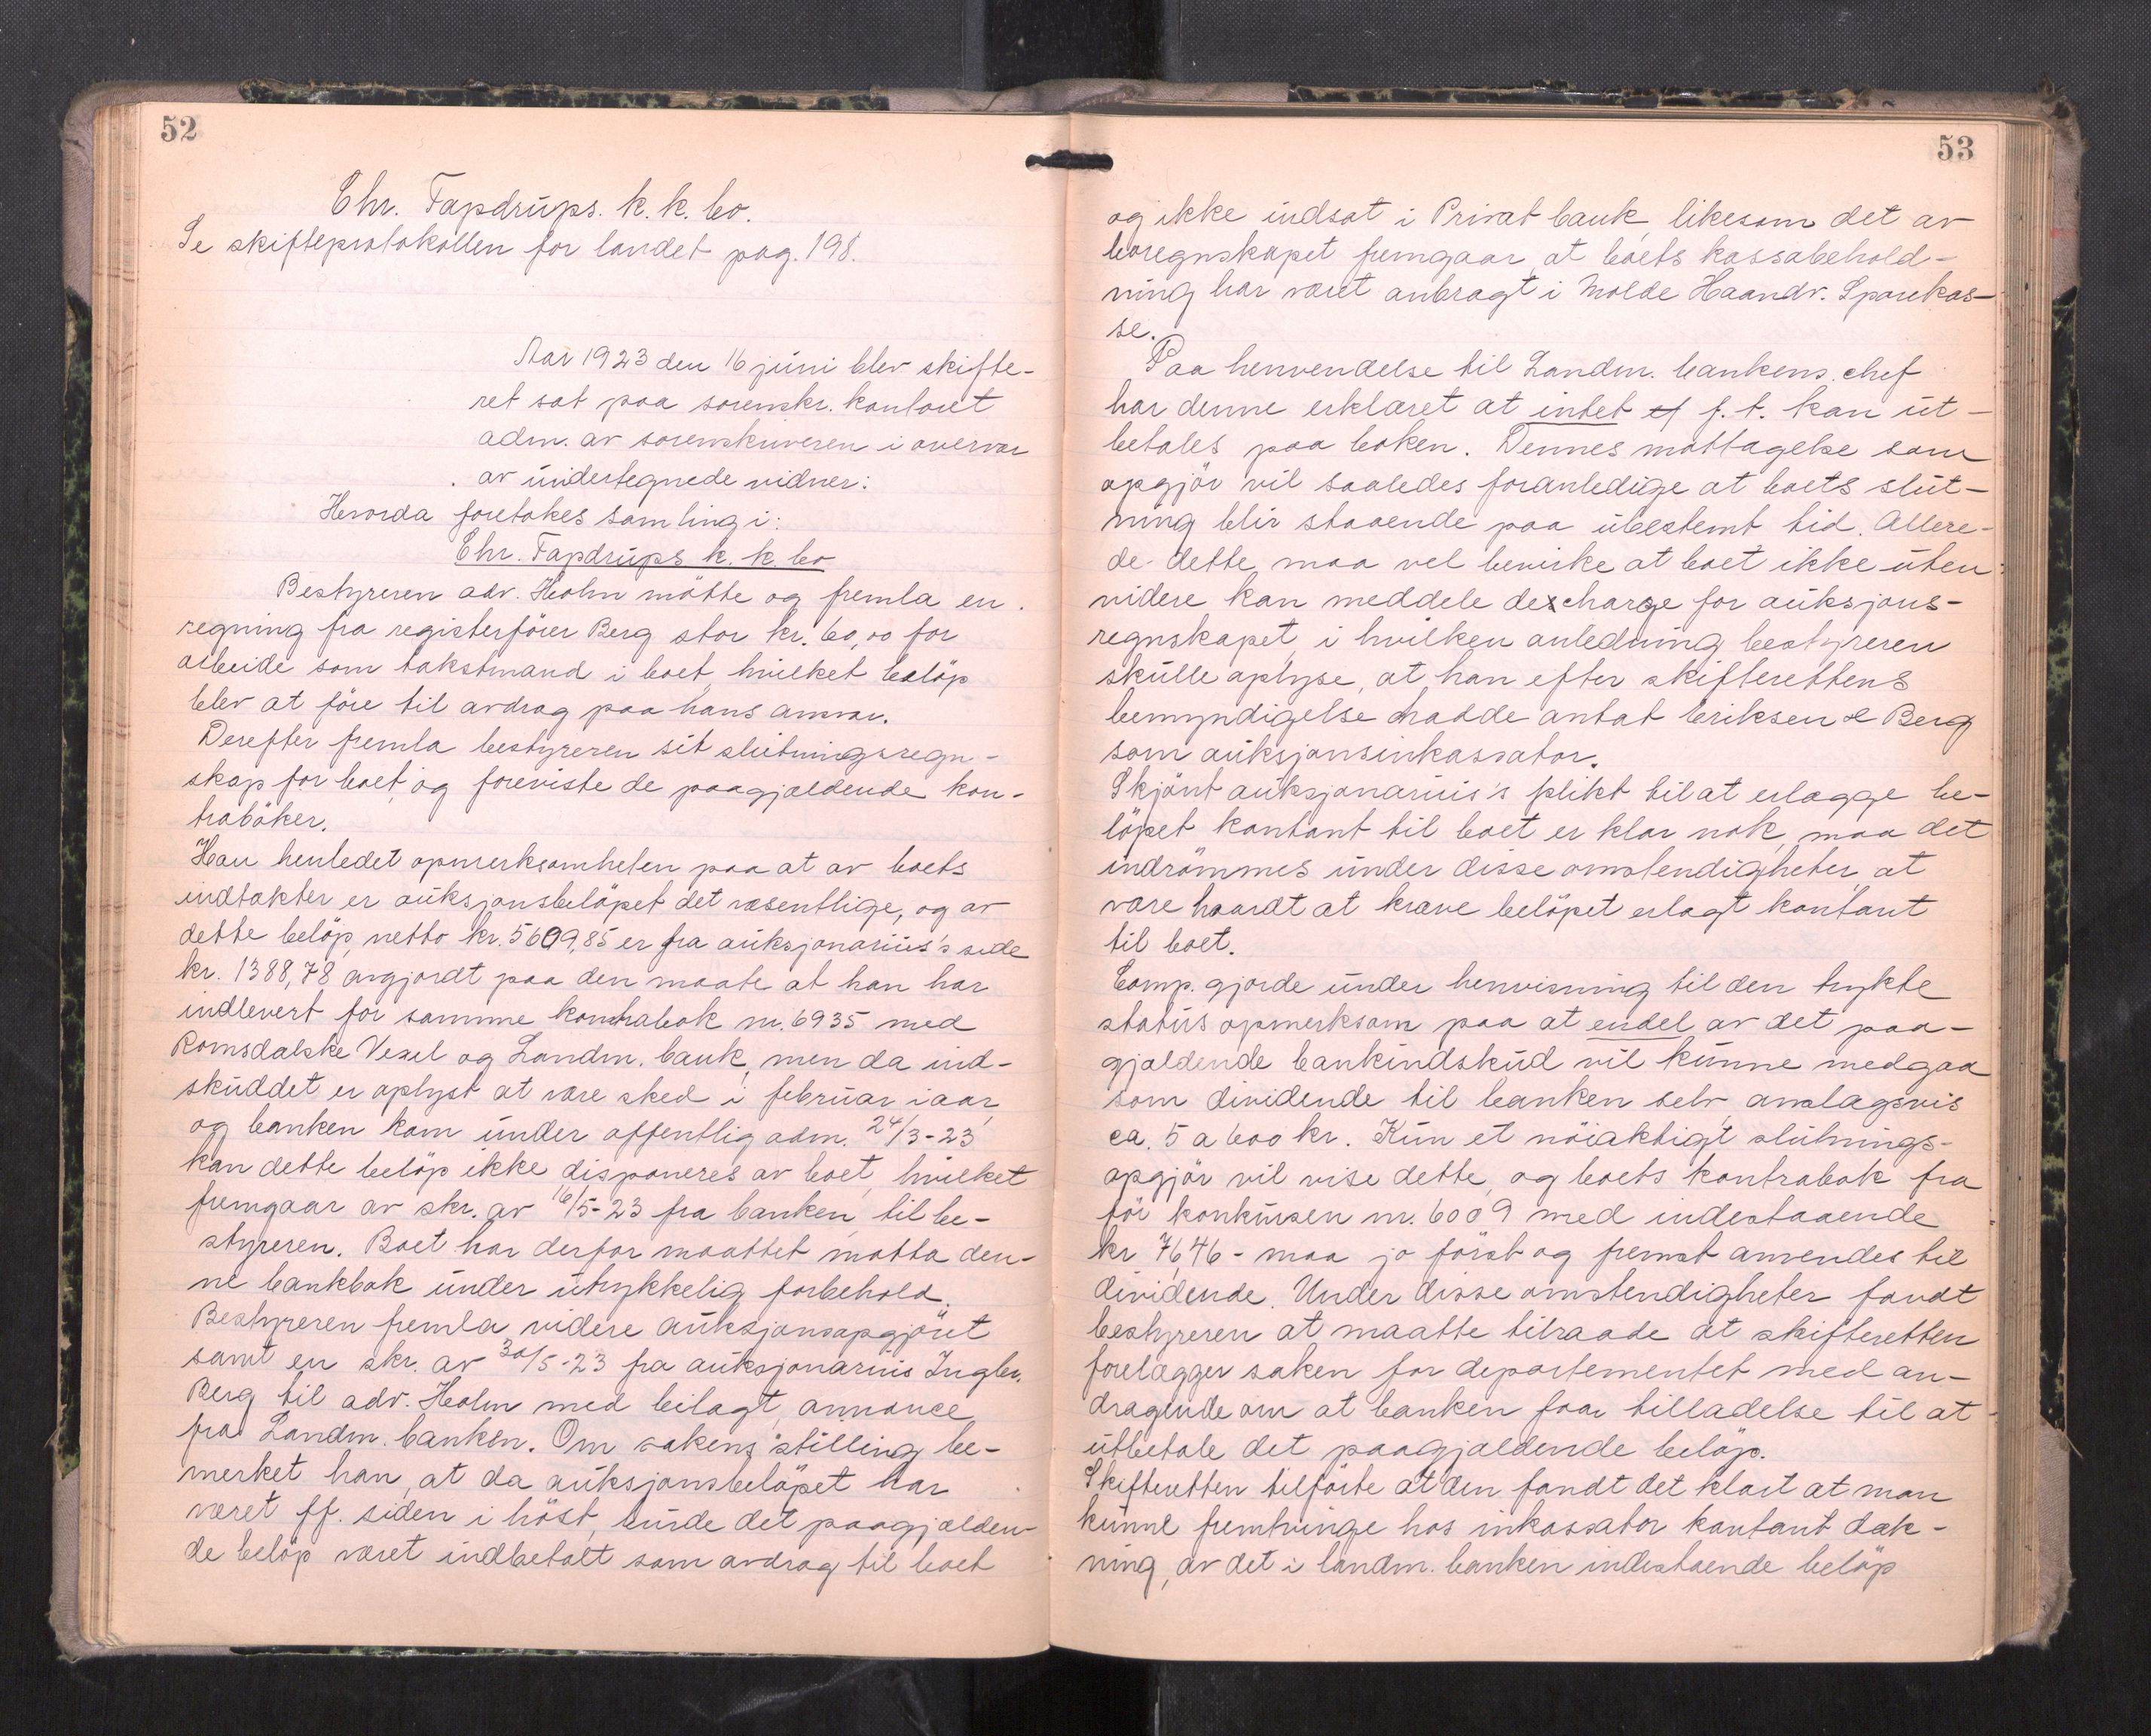 52
Chr. Tapdrups. k. k. bo.
Se skifteprotokollen for landet pag. 198.
Aar 1923 den 16 juni blev skifte-
ret sat paa sorenskr. kontoret
adm. av sorenskriveren i overvær
av undertegnede vidner:
Hvorda foretokes samling i:
Chr. Tapdrups k. k. bo
Bestyreren adv. Holm mötte og fremla en
regning fra registerförer Berg stor kr. 60,00 for
arbeide som takstmand i boet, hvilket belöp
blev at före til avdrag paa hans ansvar.
Derefter fremla bestyreren sit slutningsregn-
skap for boet, og foreviste de paagjældende kon-
trabøker.
Han henledet opmerksomheten paa at av boets
indtækter er auksjonsbelöpet det væsentlige, og av
dette belöp, netto kr. 5609,85 er fra auksjonarius's side
kr. 1388,78 avgjordt paa den maate at han har
indlevert for samme kontrabok nr. 6935 med
Romsdalske Vexel og Landm. bank, men da ind-
skuddet er oplyst at være sked i februar iaar,
og banken kom under offentlig adm. 24/3-23
kan dette belöp ikke disponeres av boet, hvilket
fremgaar av skr. av 16/5-23 fra banken til be-
styreren. Boet har derfor maattet motta den-
ne bankbok under utrykkelig forbehold.
Bestyreren fremla videre auksjonsopgjöret
samt en skr. av 30/5-23 fra auksjonarius Ingbr.
Berg til adv. Holm med bilagt annonce
fra Landm. banken. Om sakens stilling be-
merket han, at da auksjonsbelöpet har
været ff. siden i höst, burde det paagjælden-
de belöp været indbetalt som avdrag til boet
53
og ikke indsat i Privat bank, likesom det av
boregnskapet fremgaar, at boets kassabehold-
ning har været anbragt i Molde Haandv. Sparekas-
se.
Paa henvendelse til Landm. bankens chef
har denne erklæret at intet f. t. kan ut-
betales paa boken. Dennes mottagelse som
opgjör vil saaledes foranledige at boets slut-
ning blir staaende paa ubestemt tid. Allere-
de dette, maa vel bevirke at boet ikke uten
videre kan meddele decharge for auksjons-
regnskapet, i hvilken anledning bestyreren
skulle oplyse, at han efter skifterettens
bemyndigelse hadde antat Eriksen & Berg
som auksjonsinkassator.
Skjönt auksjonarius's plikt til at erlægge be-
löpet kontant til boet er klar nok, maa det
indrömmes under disse omstendigheter, at
være haardt at kræve belöpet erlagt kontant
til boet.
Comp. gjorde under henvisning til den trykte
status opmerksom paa at endel av det paa-
gjældende bankindskud vil kunne medgaa
som dividende til banken selv, anslagsvis
ca. 5 a 600 kr. Kun et nöiaktigt slutnings-
opgjör vil vise dette, og boets kontrabok fra
för konkursen nr. 6009 med indestaaende
kr 76,46 - maa jo först og fremst anvendes til
dividende. Under disse omstendigheter fandt
bestyreren at maatte tilraade at skifteretten
forelægger saken for departementet med an-
dragende om at banken faar tilladelse til at
utbetale det paagjældende belöp.
Skifteretten tilförte at den fandt det klart at man
kunne fremtvinge hos inkassator kontant dæk-
ning, av det i landm. banken indestaende belöp